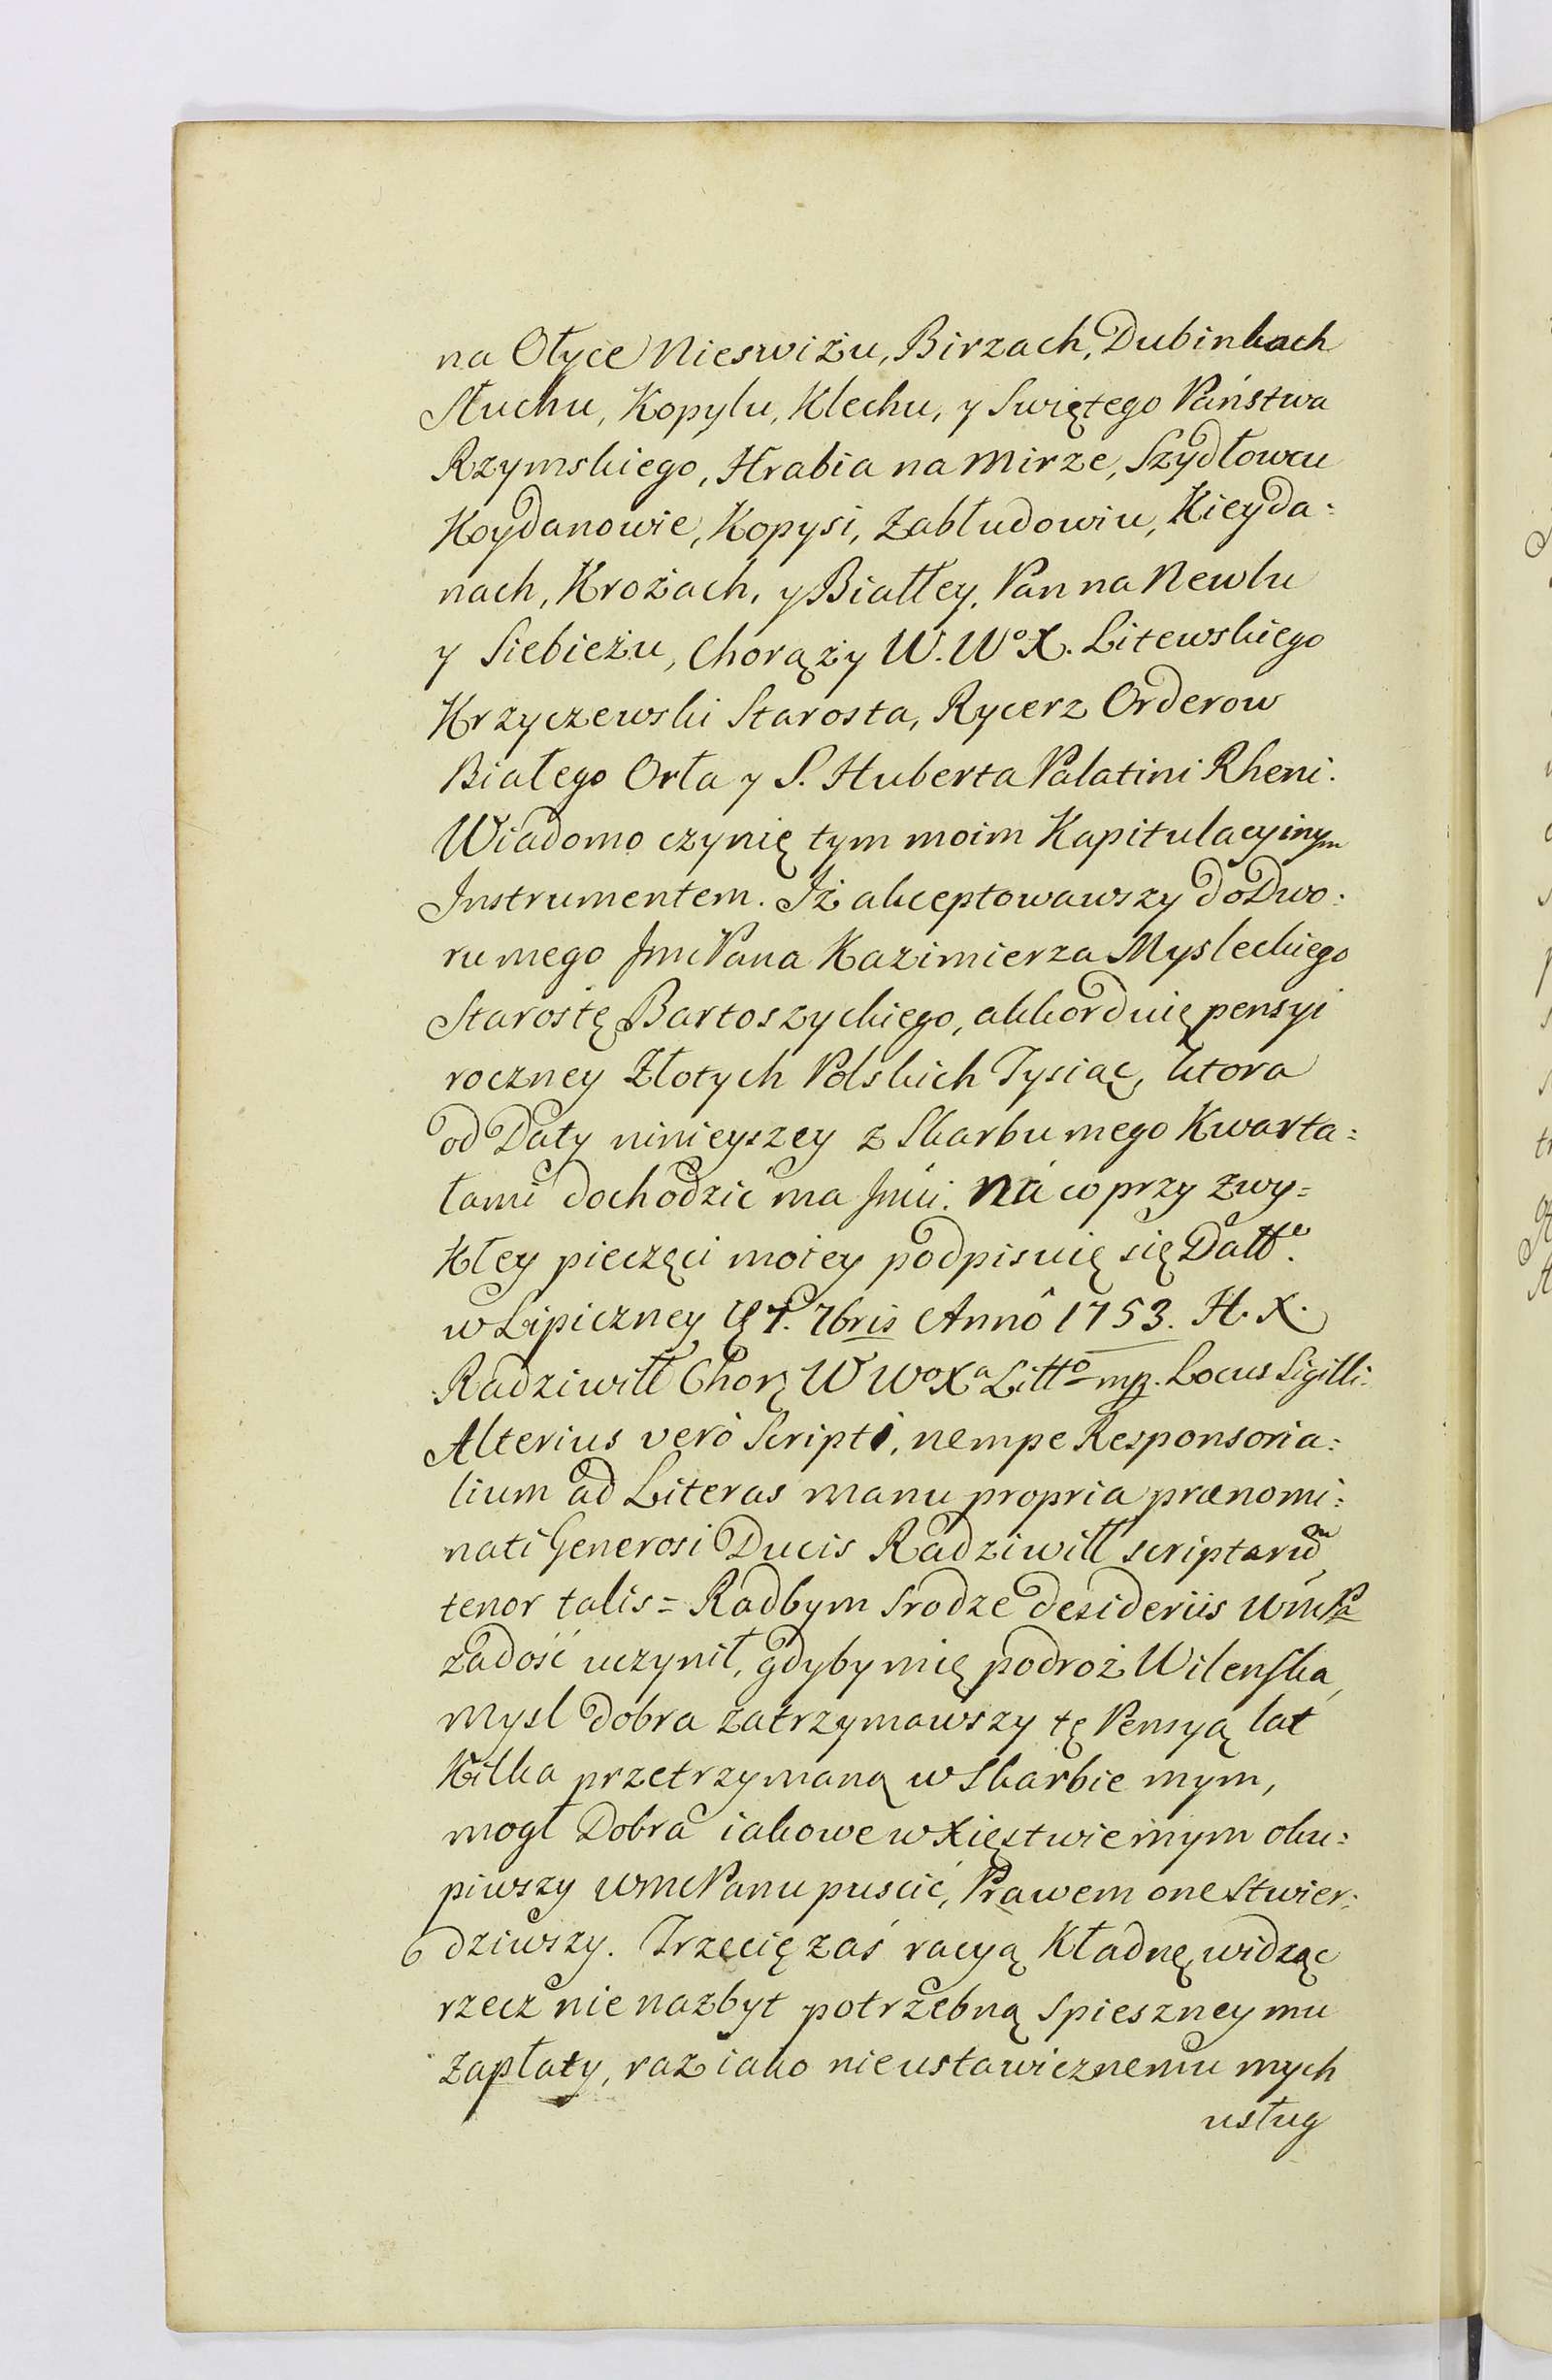 na Ołyce Nieswiżu, Birzach, Dubinkach
Słucku, Kopylu, Klecku, y Swiętego Państwa
Rzymskiego, Hrabia na Mirze, Szydłowcu
Koydanowie, Kopysi, Zabłudowiu, Kieyda=
nach, Krożach, y Białłey, Pan na Newlu
y Siebieżu, Chorąży W. Wº X. Litewskiego
Krzyczewski Starosta, Rycerz Orderow
Białego Orła y S. Huberta Palatini Rheni.
Wiadomo czynię tym moim Kapitulacyinym
Instrumentem. Iż akceptowawszy do Dwo=
ru mego Jmć Pana Kazimierza Mysleckiego
Starostę Bartoszyckiego, akkorduię pensyi
roczney Złotych Polskich Tysiąc, ktora
od Daty ninieyszey z Skarbu mego Kwarta=
łami dochodzić ma Jmći. Na co przy zwy=
kłey pieczęci moiey podpisuię się Datt.
w Lipiczney 7. 7bris Annô 1753. H. X.
Radziwiłł Chorą W Wº Xª Littº mp. Locus Sigilli.
Alterius verò Scripti, nempe Responsoria=
lium ad Literas manu propria prænomi=
nati Generosi Ducis Radziwiłł scriptarum
tenor talis = Radbym srodze desideriis WmćPª
zadość uczynił, gdyby mię podroż Wilenska,
Mysl dobra zatrzymawszy tę Pensyą lat
Kilka przetrzymaną w Skarbie mym,
mogł Dobra iakowe w Xięstwie mym oku=
piwszy WmćPanu puscić, Prawem one stwier=
dziwszy. Trzecię zaś racyą Kładnę, widząc
rzecz nie nazbyt potrzebną spieszney mu
zapłaty, raz iako nieustawicznemu mych
usług